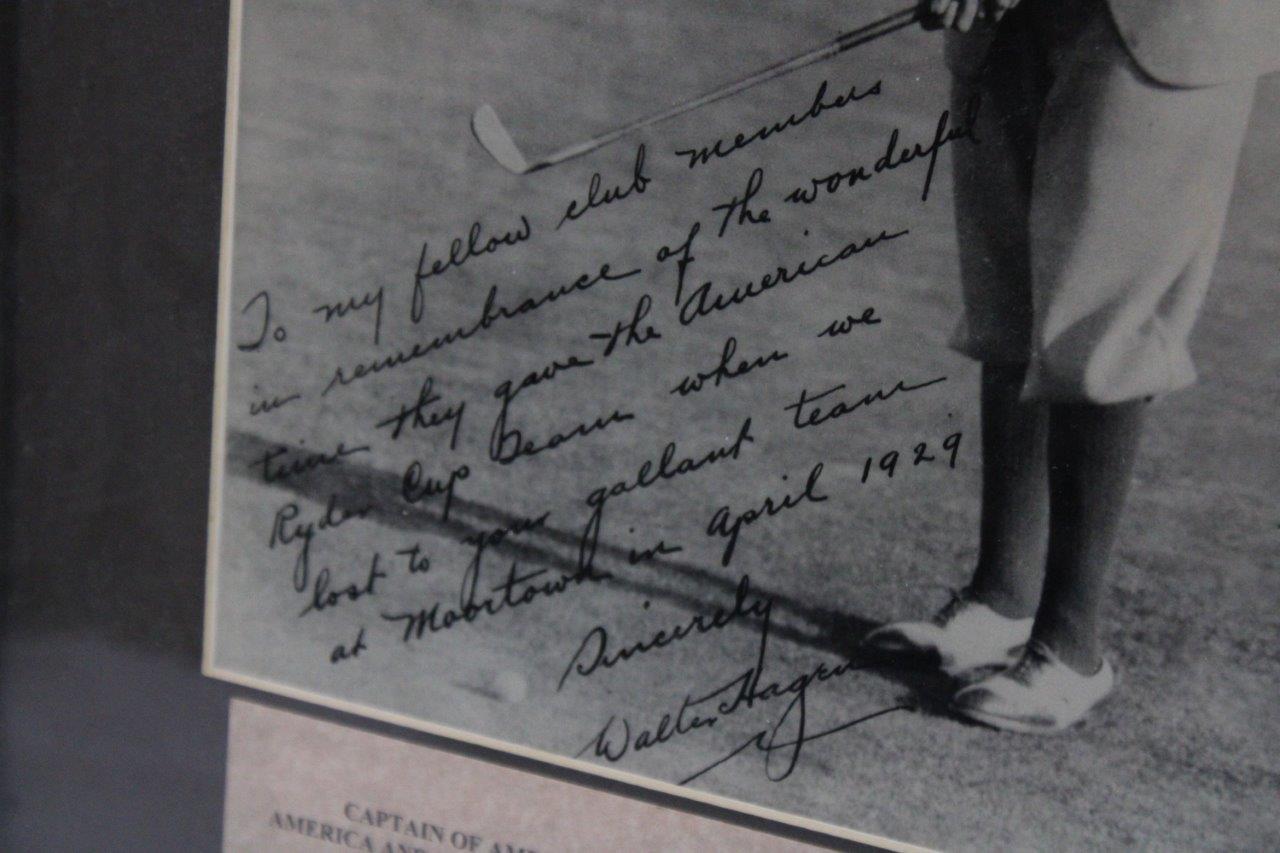 To my fellow club members
in remembrance of the wonderful
time they gave the American
Ryder Cup Team when we
lost to your gallant team
at Moortown in April 1929
Sincerely
Walter Hagen
CAPTAIN OF
AMERICA